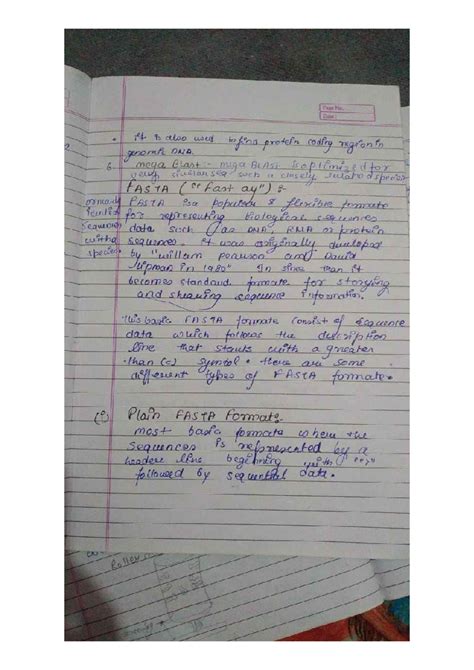 Page No.
Date:
• it is also used to find protein coding region in
genomic DNA.
6. mega Blast:- mega BLAST is optimized for
very similar seq with a closely related species
FASTA ("Fast ay") :-
FASTA is a popular & flexible formate
for representing Biological sequences
data such as DNA, RNA or protein
sequences. it was originally developed
by "william pearson and David
lipman in 1980" In since then it
becomes standard formate for storying
and shearing sequence information.
This basic FASTA formate consist of sequence
data which follows the description
line that starts with a greater
than (>) symbol. there are some
different types of FASTA formate.
(i) Plain FASTA Format:
most basic formate where the
sequences is represented by a
header line beginning with ">"
followed by sequential data.